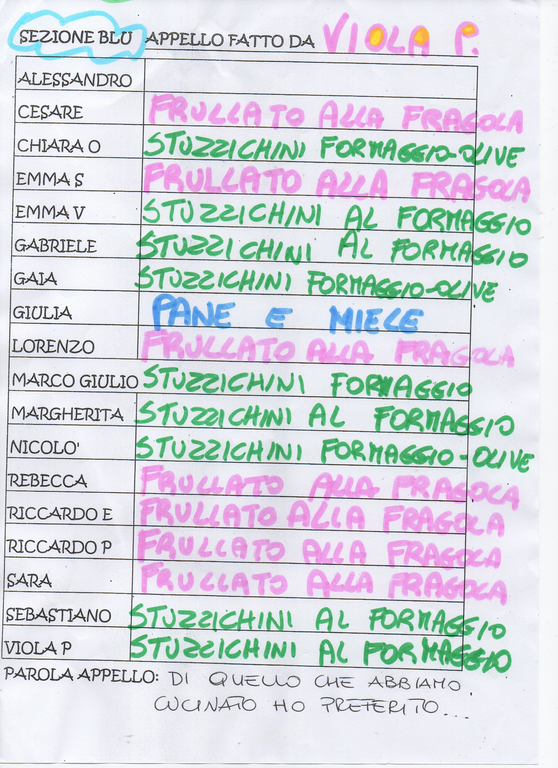 SEZIONE BLU APPELLO FATTO DA VIOLA P.
ALESSANDRO
CESARE FRULLATO ALLA FRAGOLA
CHIARA O STUZZICHINI FORMAGGIO-OLIVE
EMMA S FRULLATO ALLA FRAGOLA
EMMA V STUZZICHINI AL FORMAGGIO
GABRIELE STUZZICHINI AL FORMAGGIO
GAIA STUZZICHINI FORMAGGIO-OLIVE
GIULIA PANE E MIELE
LORENZO FRULLATO ALLA FRAGOLA
MARCO GIULIO STUZZICHINI FORMAGGIO
MARGHERITA STUZZICHINI AL FORMAGGIO
NICOLO' STUZZICHINI FORMAGGIO-OLIVE
REBECCA FRULLATO ALLA FRAGOLA
RICCARDO E FRULLATO ALLA FRAGOLA
RICCARDO P FRULLATO ALLA FRAGOLA
SARA FRULLATO ALLA FRAGOLA
SEBASTIANO STUZZICHINI AL FORMAGGIO
VIOLA P STUZZICHINI AL FORMAGGIO
PAROLA APPELLO: DI QUELLO CHE ABBIAMO
CUCINATO HO PREFERITO...